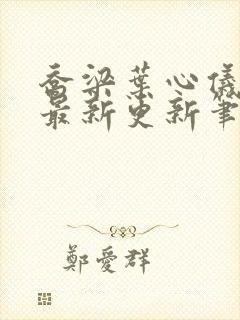 喬梁葉心儀
最新更新筆
鄭愛群